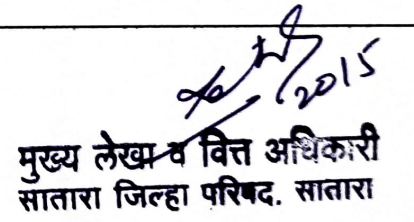 2015
मुख्य लेखा व वित्त अधिकारी
सातारा जिल्हा परिषद. सातारा